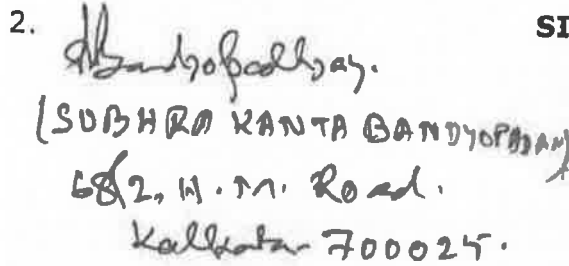 2. SI
SBandyopadhyay.
(SUBHRA KANTA BANDYOPADAY)
68/2, H.M. Road.
Kolkata - 700025.